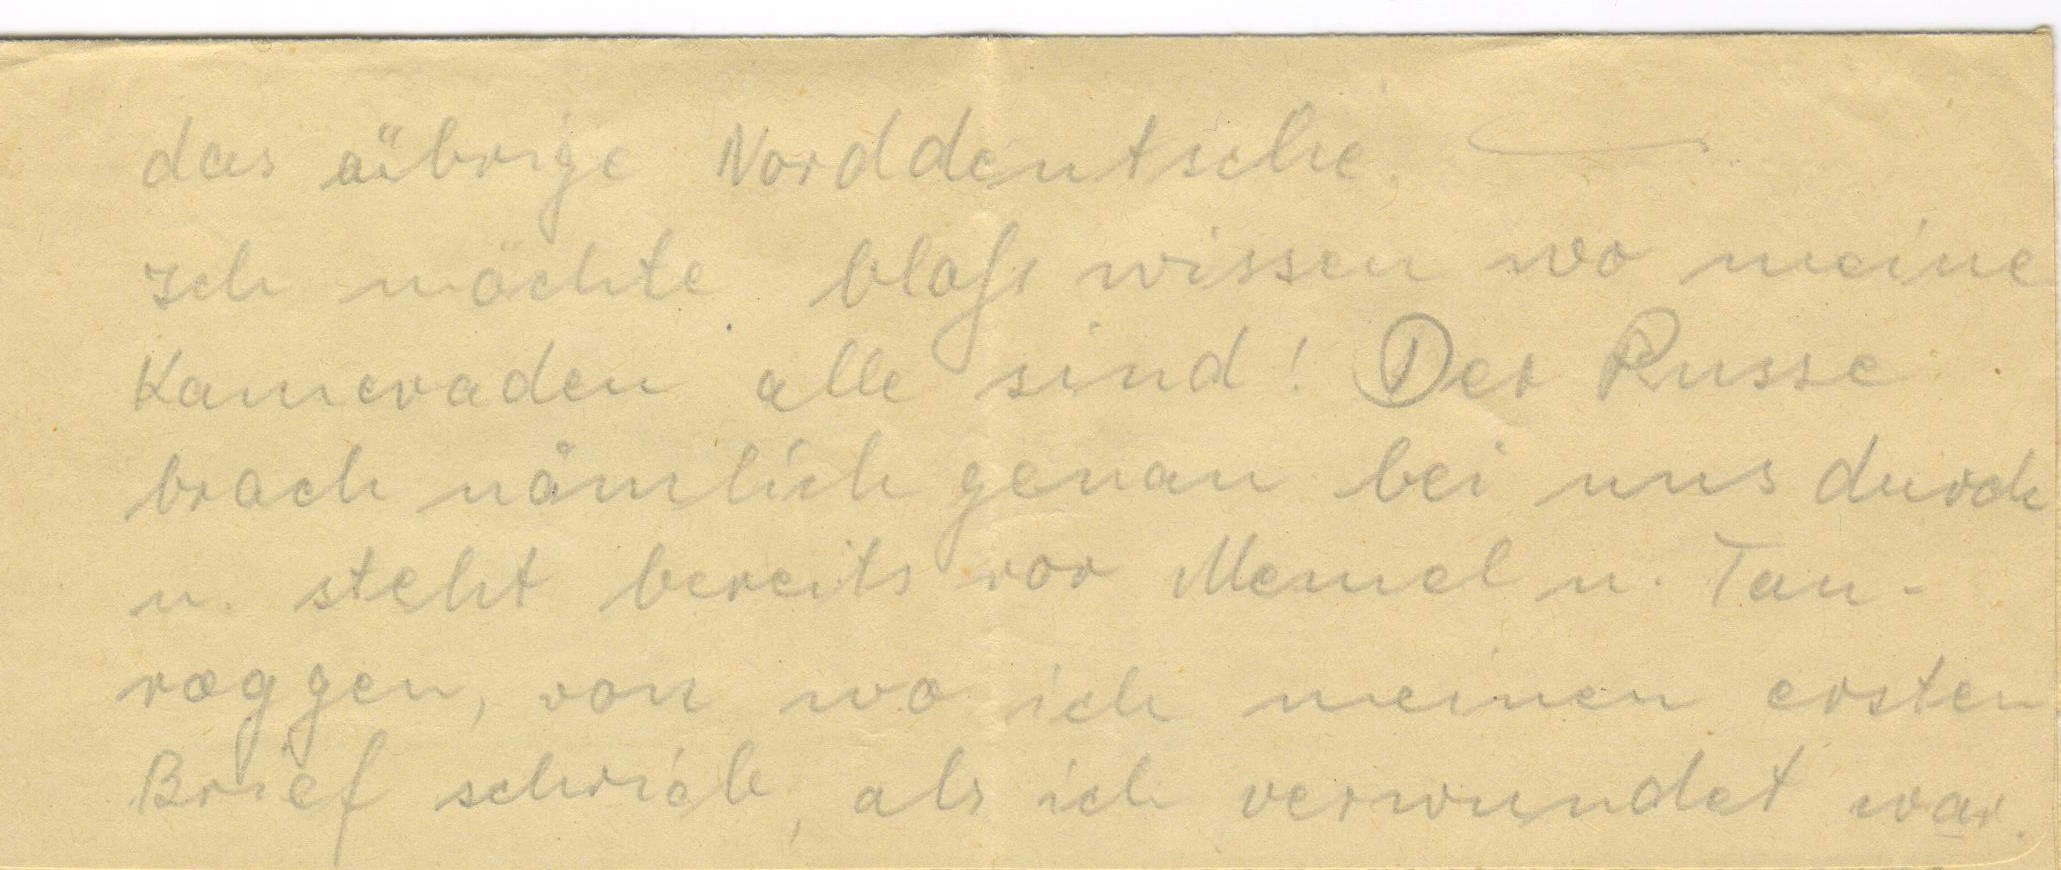 das übrige Norddeutsche.
Ich möchte bloß wissen wo meine
Kameraden alle sind! Der Russe
brach nämlich genau bei uns durch
u. steht bereits vor Memel u. Tau-
roggen, von wo ich meinen ersten
Brief schrieb, als ich verwundet war.